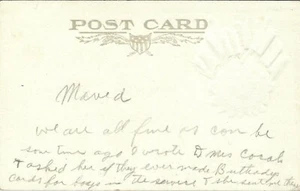 POST CARD
Moved
we are all fine as can be
some time ago I wrote Mrs
& asked her if they ever made Birthday
Cards for boys in the service & she sent one they